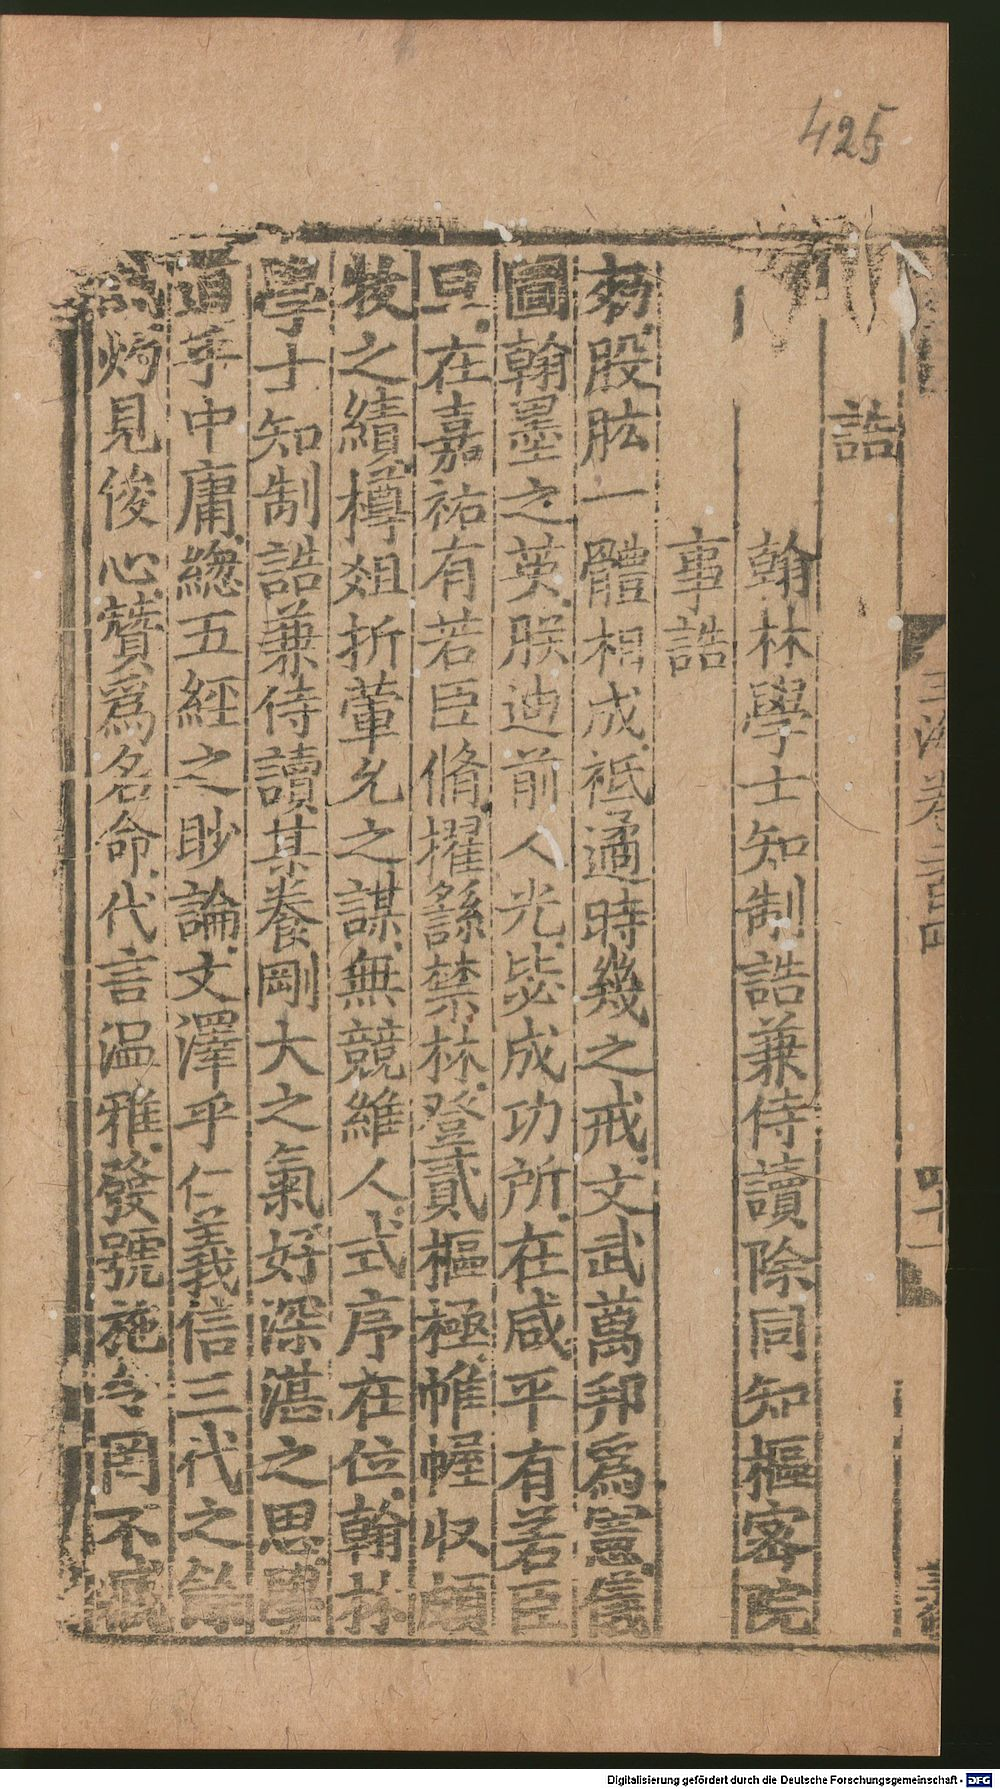 425
玉海卷二百四
四十一
誥
翰林學士知制誥兼侍讀除同知樞密院
事誥
勑股肱一體相成祗遹時幾之戒文武萬邦爲憲僃
圖翰墨之英朕迪前人光毖成功所在咸平有若臣
旦在嘉祐有若臣脩擢繇禁林登貳樞極帷幄收頗
牧之績樽爼折葷允之謀無競維人式序在位翰林
學士知制誥兼侍讀某養剛大之氣好深湛之思學
道乎中庸緫五經之眇論文澤乎仁義信三代之
灼見俊心贊爲名命代言温雅發號施令罔不臧
Digitalisierung gefördert durch die Deutsche Forschungsgemeinschaft - DFG